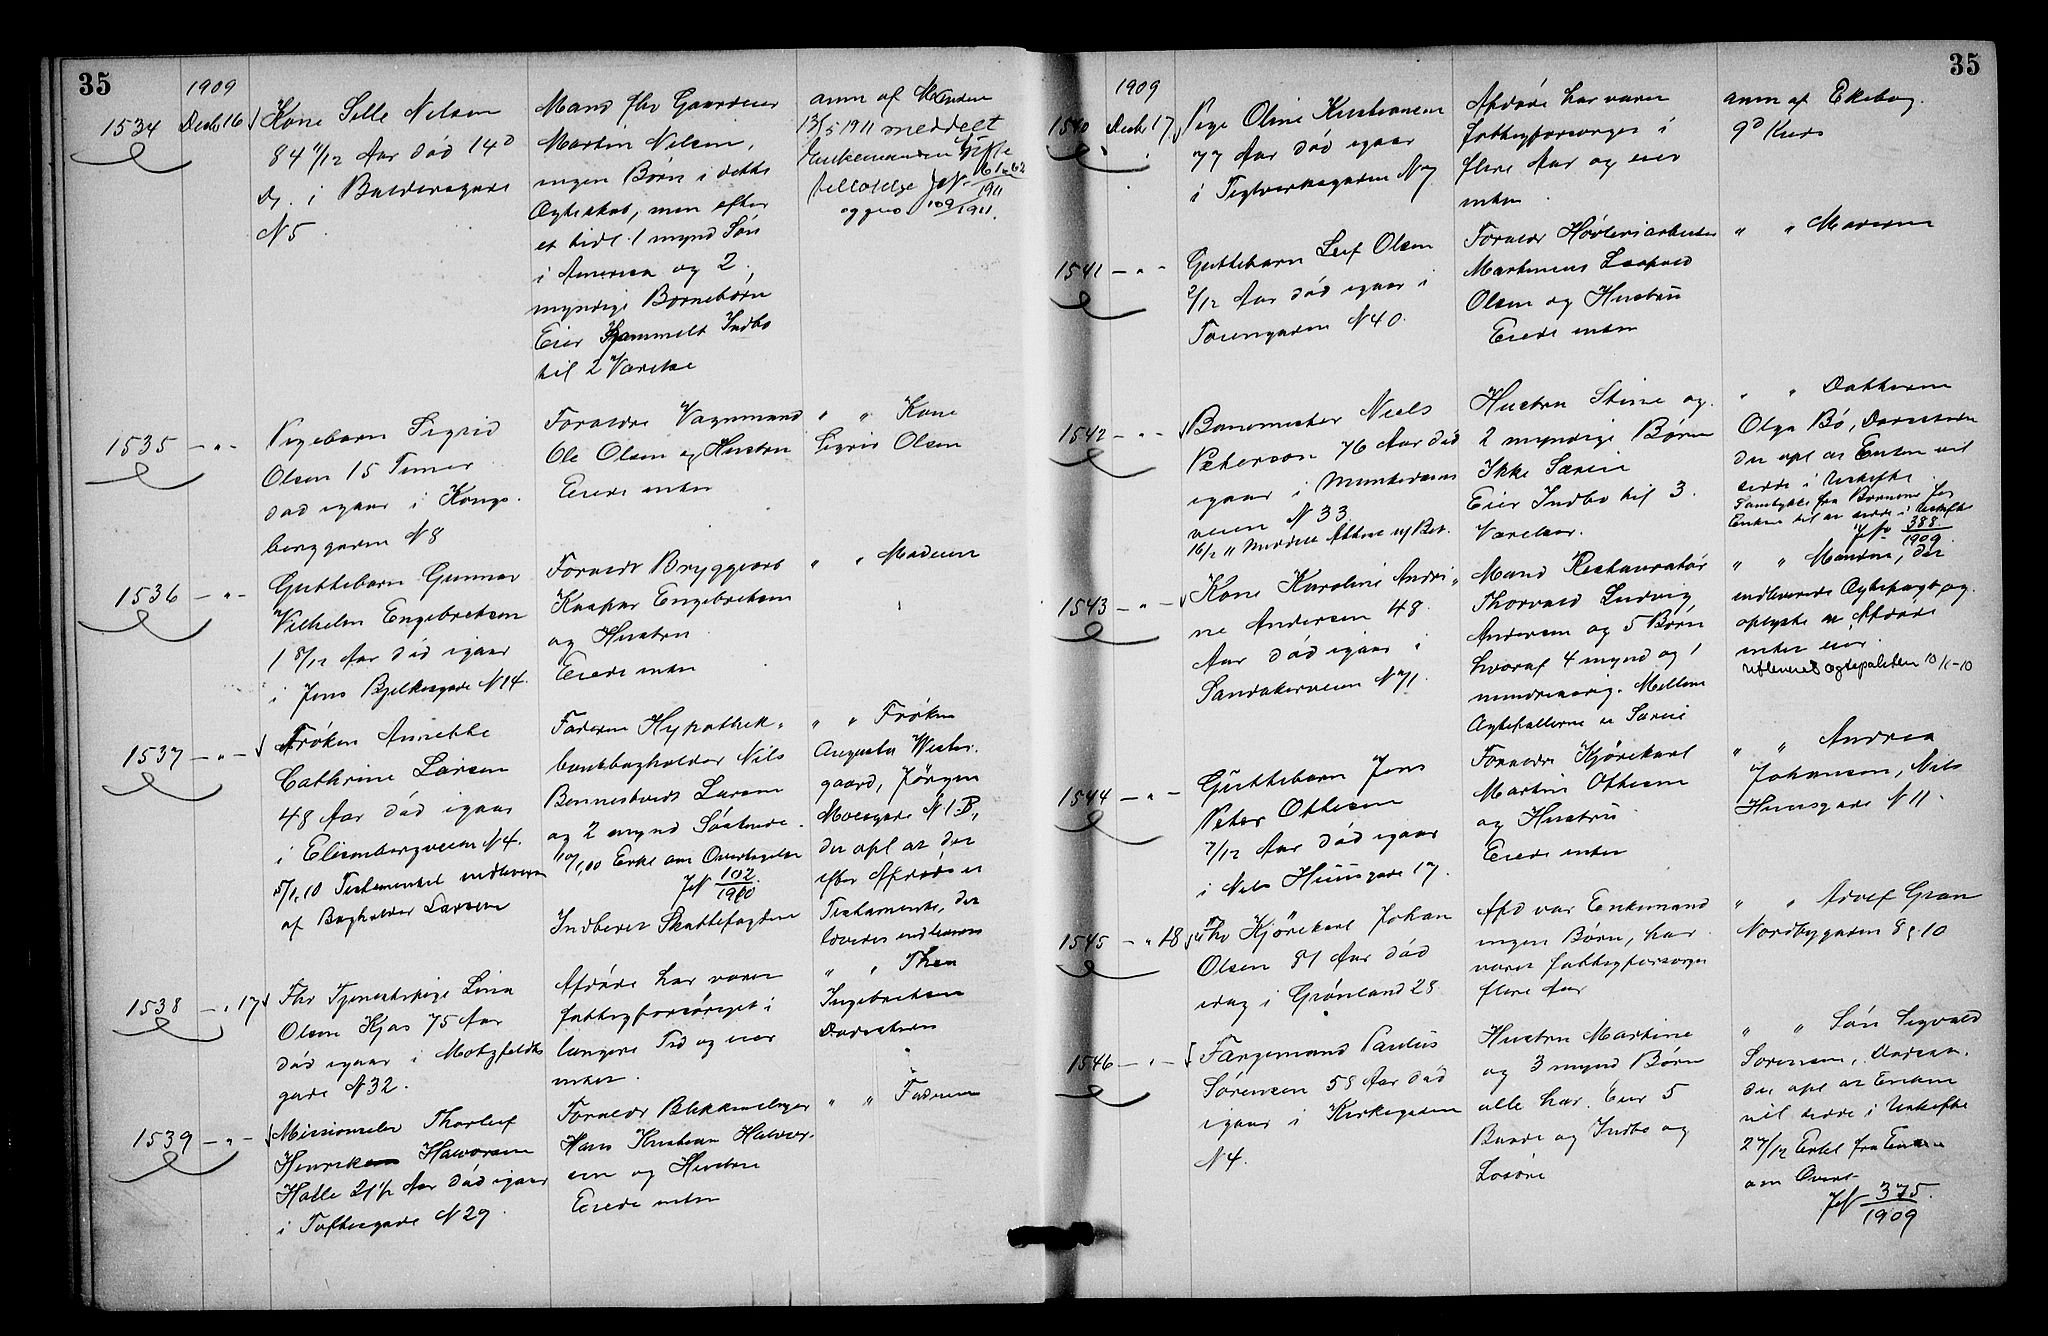 35
1909
1534 Decb 16 Kone Sille Nilsen
84 11/12 Aar död 14d
ds. i Baldersgade
N 5
Mand fhv Gaardeier
Martin Nilsen,
ingen Börn i dette
Ægteskab, men efter
et tidl. 1 mynd Sön
i America og 2
myndige Börnebörn
Eier Gammelt Indbo
til 2 Værelse
anm af Manden
13/5 1911 meddelt
Enkemanden
JN 161-62/1911
109/1911.
1535 - " - Pigebarn Sigrid
Olsen 15 Timer
död igaar i Kongs-
berggaden N 8
Forældre Vognmand
Ole Olsen og Hustru
Eiede intet
" " Kone
Sigrid Olsen
1536 - " - Guttebarn Gunnar
Vilhelm Engebretsen
1 8/12 Aar död igaar
i Jens Bjelkesgade N 14.
Forældr Bryggearb
Kaspar Engebretsen
og Hustru
Eiede intet
" " Moderen
1537 - " - Fröken Annette
Cathrine Larsen
48 Aar död igaar
i Elisenbergveien N 4.
5/1.10 Testamentet indleveret
af Bogholder Larsen
Faderen Hypothek-
bankbogholder Nils
Bennestvedt Larsen
og 2 mynd Söskende.
10/1.00 Erkl om Overtagelse
JN 102/1910
Indberet Skattefogden
" " Fröken
Augusta Wester-
gaard, Jörgen
Moesgade N 1 B,
der opl at der
efter Afdöde er
Testamente, der
loves indleveret
1538 - " 17 Fhv Tjenestepige Lina
Olsen Kjos 75 Aar
död igaar i Motzfeldts
gade N 32.
Afdöde har været
fattigforsörget i
længere Tid og eier
intet.
" " Thea
Ingebretsen
Datteren
1539 - " - Missionselev Thorleif
Henriksen Halvorsen
Halle 21 1/2 Aar död igaar
i Toftesgade N 29.
Forældr Blikkenslager
Hans Kristian Halvor-
sen og Hustru
Eiede intet
" " Faderen
35
1909
1540 Decb 17 Pige Oline Kristiansen
77 Aar död igaar
i Teglverksgaden N 7
Afdöde har været
fattigforsörget i
flere Aar og eier
intet
anm af Ekeberg.
9d Kreds
1541 - " - Guttebarn Leif Olsen
2/12 Aar död igaar i
Torvgaden N 40.
Forældr Høvleriarbeider
Martinius Leopold
Olsen og Hustru
Eiede intet
" " Moderen
1542 - " - Banemester Niels
Peterson 76 Aar död
igaar i Munkedams
veien N 33.
16/12 " Meddelt Attest u/ Bev.
Hustru Stine og
2 myndige Börn
Ikke Særeie
Eier Indbo til 3.
Værelser.
" " Datteren
Olga Bö,
der opl at Enken vil
sidde i Uskifte
Samtykke fra Börnene for
Enken til at sidde i Uskifte
JN 388/1909
1543 - " - Kone Karoline Andri-
ne Andersen 48
Aar död igaar i
Sandakerveien N 71.
Mand Restauratör
Thorvald Ludvig
Andersen og 5 Börn
hvoraf 4 mynd og 1
mindreaarig. Mellem
Ægtefællerne er Særeie
" " Manden, der
indleverede Ægtepagt og
oplyste at Afdöde
intet eier
Utleveret ægtepakten 10/11-10
1544 - " - Guttebarn Jens
Peter Ottesen
7/12 Aar död igaar
i Nils Huusgade 17.
Forældr Kjörekarl
Martin Ottesen
og Hustru
Eiede intet
" " Andrea
Johansen, Nils
Huusgade N 11.
1545 - " 18 Fhv Kjörekarl Johan
Olsen 81 Aar död
idag i Grönland 28
Afd var Enkemand
ingen Börn, har
været fattigforsörget
flere Aar
" " Adolf Gran
Nordbygaden 8 & 10
1546 - " - Fargemand Paulus
Sörensen 58 Aar död
igaar i Kirkegaden
N 4.
Hustru Martine
og 3 mynd Börn
alle her. Eier
og Indbo og
Lösöre
" " Sön Sigvald
Sorensen,
der opl at Enken
vil sidde i Uskifte
27/12 Erkl fra Enken
om Overt
JN 375/1909